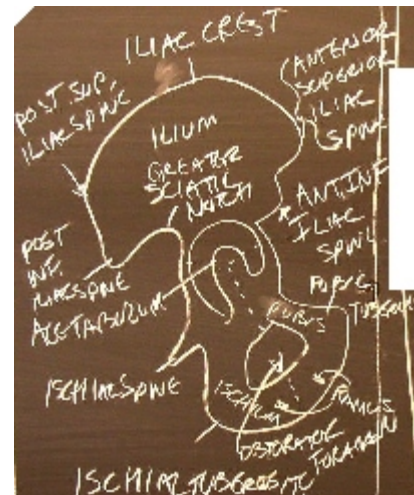 ILIAC CREST
ANTERIOR
SUPERIOR
ILIAC
SPINE
POST. SUP.
ILIAC SPINE
ILIUM
GREATER
SCIATIC
NOTCH
ANT. INF
ILIAC
SPINE
POST
INF.
ILIAC SPINE
ACETABULUM
PUBIS
TUBERCLE
PUBIS
ISCHIAL SPINE
ISCHIUM
RAMUS
OBTURATOR
FORAMEN
ISCHIAL TUBEROSITY